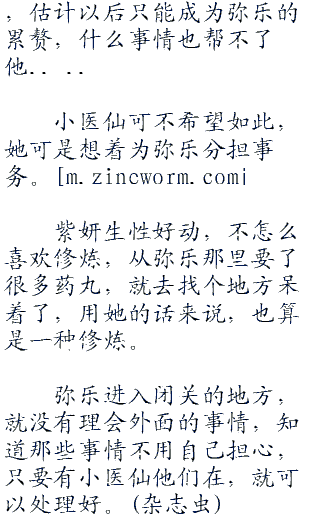 ，估计以后只能成为弥乐的
累赘，什么事情也帮不了
他．．．．
小医仙可不希望如此，
她可是想着为弥乐分担事
务。[m.zincworm.com]
紫妍生性好动，不怎么
喜欢修炼，从弥乐那里要了
很多药丸，就去找个地方呆
着了，用她的话来说，也算
是一种修炼。
弥乐进入闭关的地方，
就没有理会外面的事情，知
道那些事情不用自己担心，
只要有小医仙他们在，就可
以处理好。(杂志虫)